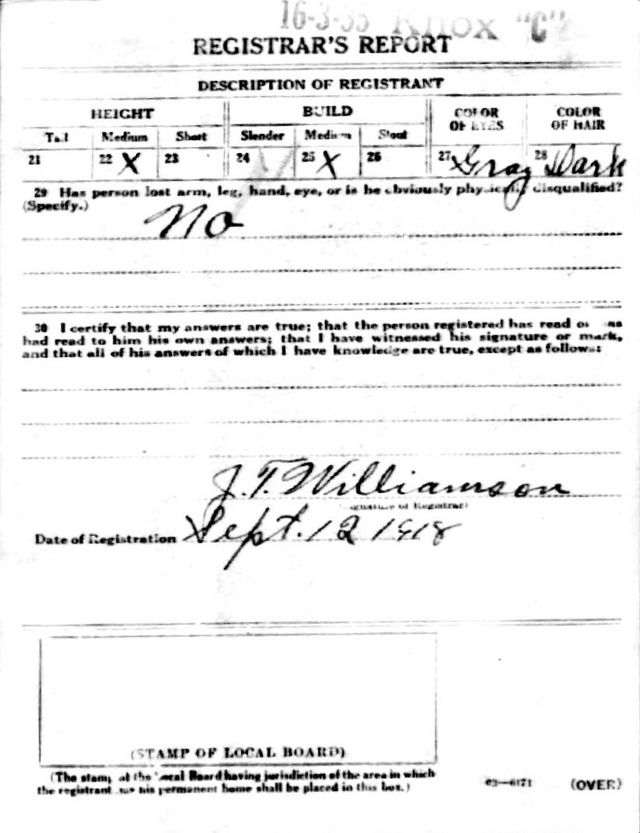 16-3-35 Knox "C"
REGISTRAR'S REPORT
DESCRIPTION OF REGISTRANT
HEIGHT BUILD COLOR OF EYES COLOR OF HAIR
Tall Medium Short Slender Medium Stout
21 22 X 23 24 25 X 26 27 Gray 28 Dark
29 Has person lost arm, leg, hand, eye, or is he obviously physically disqualified?
(Specify.) No
30 I certify that my answers are true; that the person registered has read or has
had read to him his own answers; that I have witnessed his signature or mark,
and that all of his answers of which I have knowledge are true, except as follows:
J. T. Williamson
(Signature of Registrar)
Date of Registration Sept. 12 1918
(STAMP OF LOCAL BOARD)
(The stamp of the Local Board having jurisdiction of the area in which
the registrant has his permanent home shall be placed in this box.)
03—6171 (OVER)